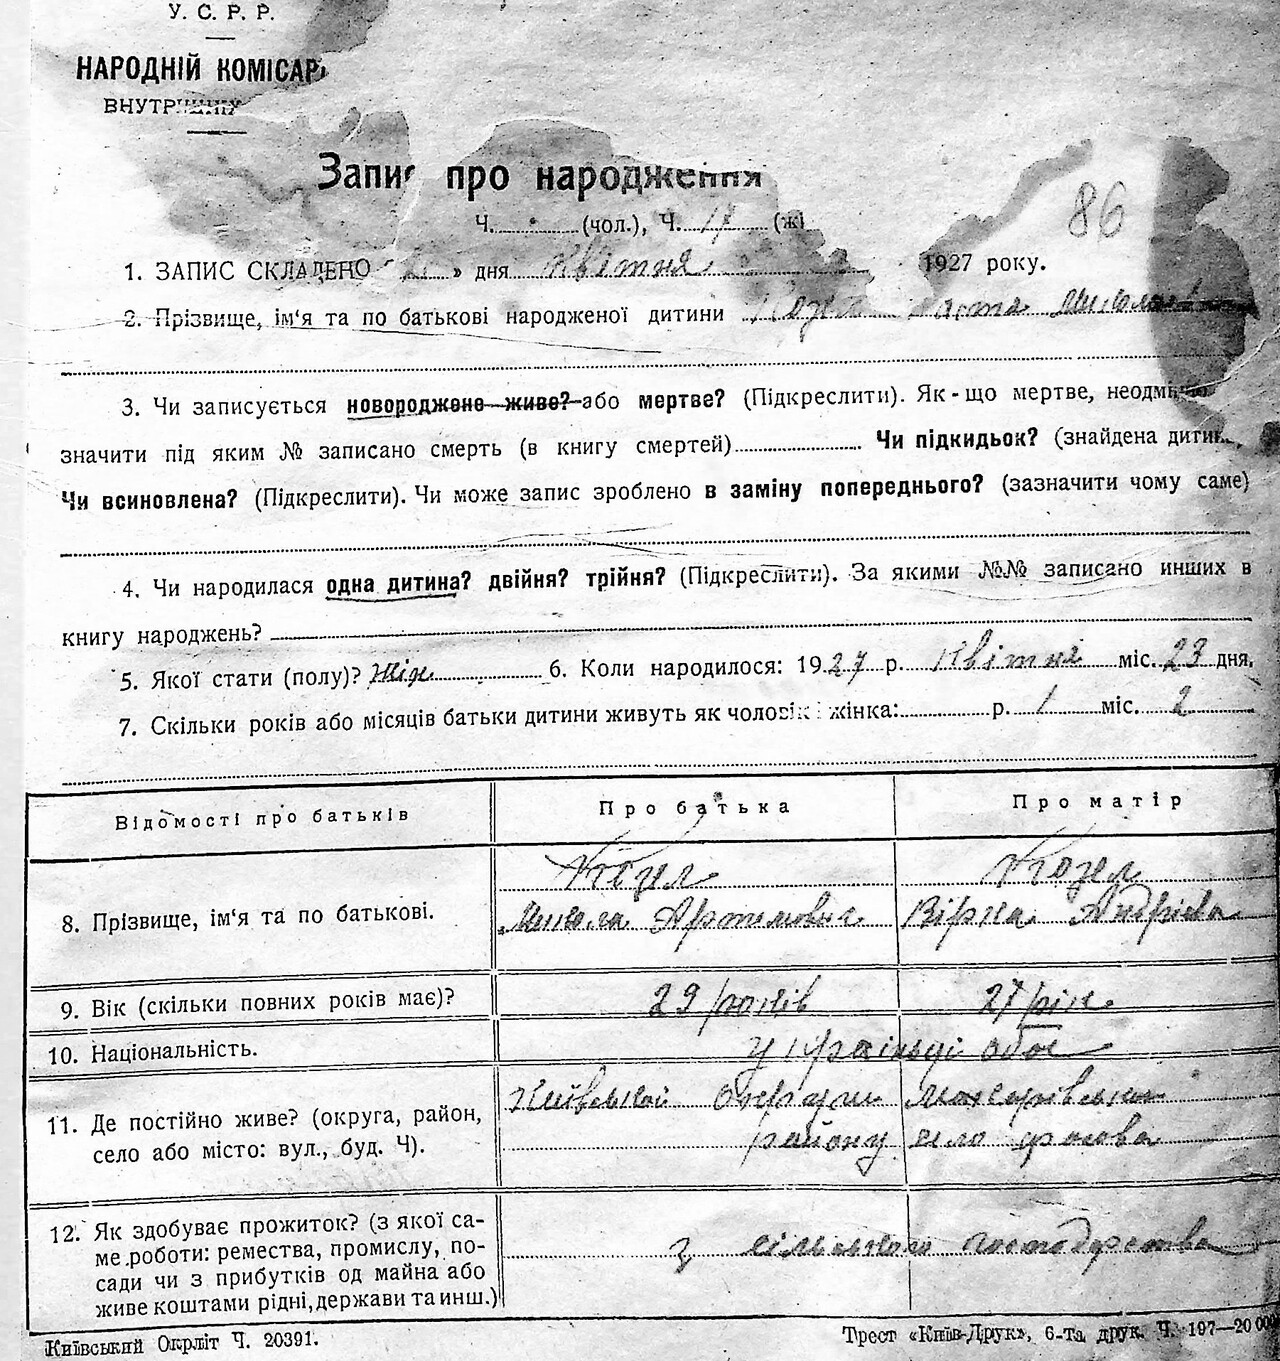 У. С. Р. Р.
НАРОДНІЙ КОМІСАР
ВНУТР
Запис про народження
Ч. (чол.), Ч. 17 (ж)
86
1. ЗАПИС СКЛАДЕНО « » дня Квітня 1927 року.
2. Прізвище, ім'я та по батькові народженої дитини Козел
3. Чи записується новороджене живе? або мертве? (Підкреслити). Як-що мертве, неодмінно
значити під яким № записано смерть (в книгу смертей) Чи підкидьок? (знайдена дитин
Чи всиновлена? (Підкреслити). Чи може запис зроблено в заміну попереднього? (зазначити чому саме)
4. Чи народилася одна дитина? двійня? трійня? (Підкреслити). За якими №№ записано инших в
книгу народжень?
5. Якої стати (полу)? жін 6. Коли народилося: 1927 р. Квітня міс. 23 дня.
7. Скільки років або місяців батьки дитини живуть як чоловік і жінка: р. 1 міс. 2
Відомості про батьків Про батька Про матір
Козел Козел
8. Прізвище, ім'я та по батькові. Микола Артемович Вірка Андріева
9. Вік (скільки повних років має)? 29 років 27 рік
10. Національність. Українці обоє
11. Де постійно живе? (округа, район, Київської Округи Макарівського
село або місто: вул., буд. Ч). району село Фасова
12. Як здобуває прожиток? (з якої са-
ме роботи: ремества, промислу, по- з сільського господарства
сади чи з прибутків од майна або
живе коштами рідні, держави та инш.)
Київський Окрліт Ч. 20391. Трест «Київ-Друк», 6-та друк. Ч. 197—20 000